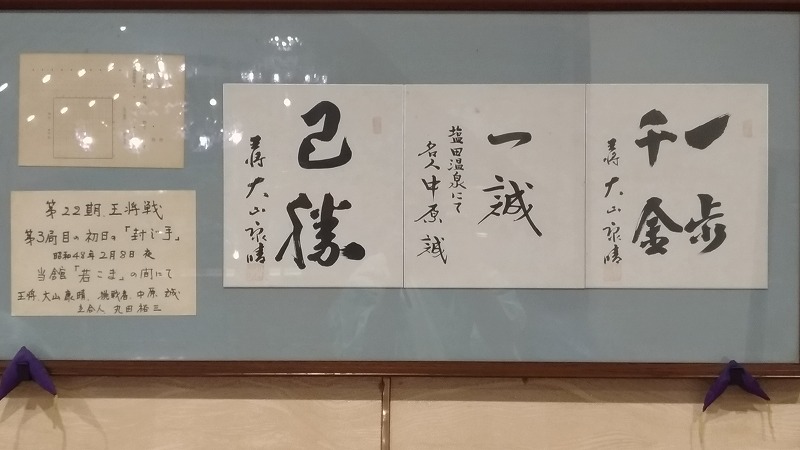 一歩
千金
王将 大山康晴
一誠
塩田温泉にて
名人 中原誠
己勝
王将 大山康晴
第22期 王将戦
第3局目の初日の「封じ手」
昭和48年2月8日 夜
当館「若こま」の間にて
王将、大山康晴、挑戦者、中原誠
立会人 丸田祐三